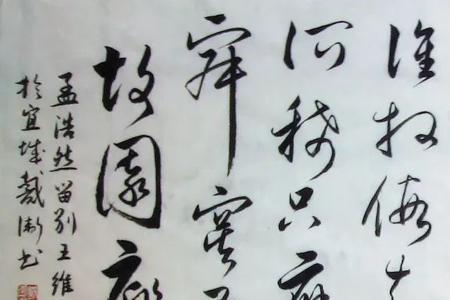 谁相假知
所稀只应
寂寞还
故园扉
孟浩然留别王維
於宜城戴衛书